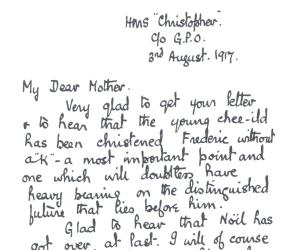 HMS "Christopher".
c/o G.P.O.
3rd August. 1917.
My Dear Mother.
Very glad to get your letter
& to hear that the young chee-ild
has been christened Frederic without
a "K" - a most important point and
one which will doubtless have
heavy bearing on the distinguished
future that lies before him.
Glad to hear that Noël has
got over, at last. I will of course